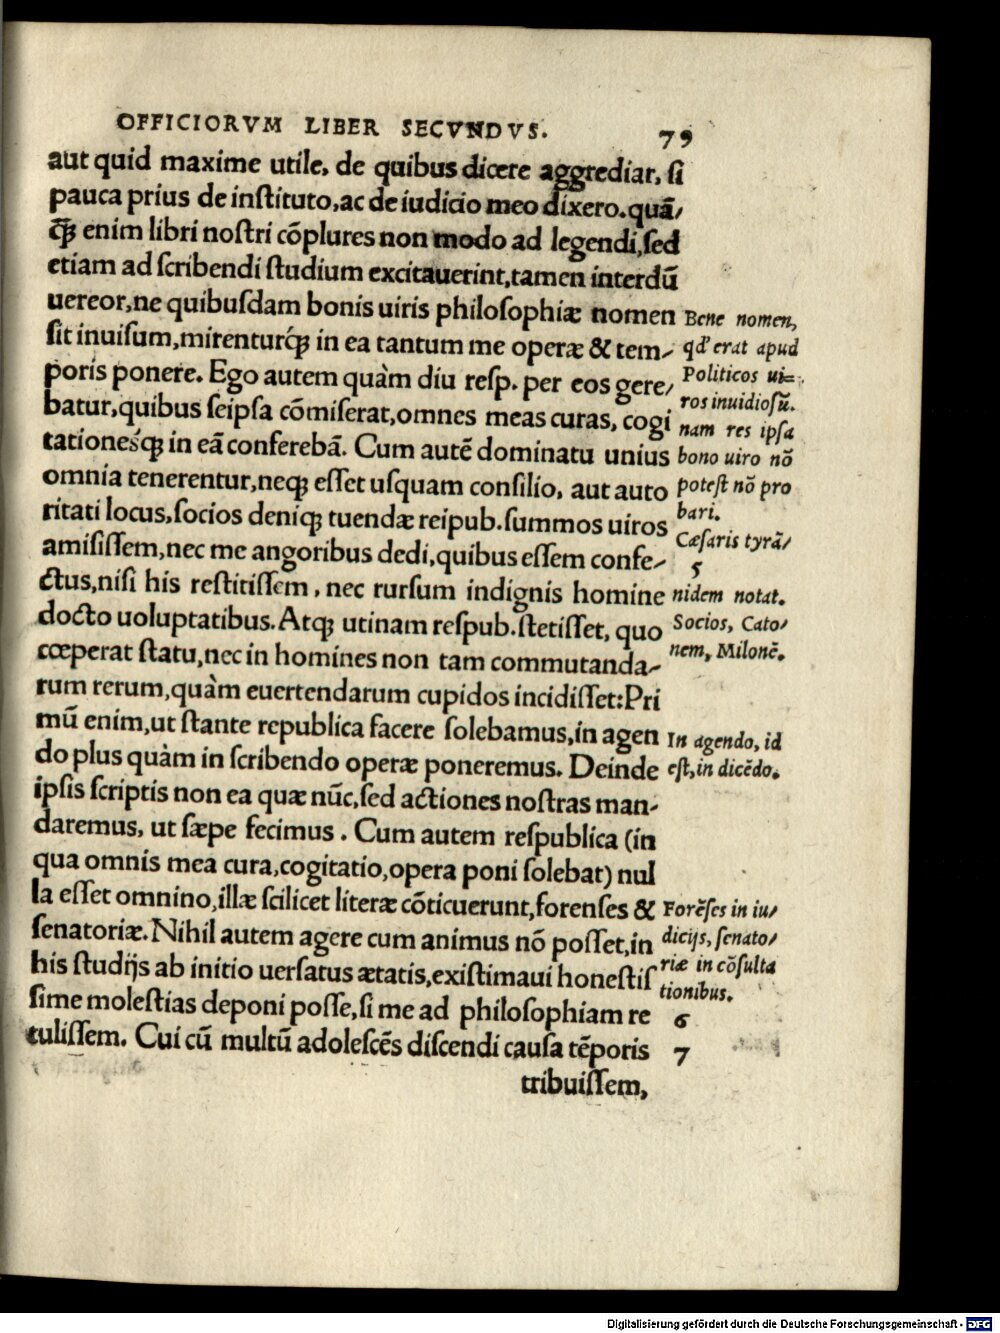 OFFICIORVM LIBER SECVNDVS. 79
aut quid maxime utile, de quibus dicere aggrediar, ſi
pauca prius de inſtituto,ac de iudicio meo dixero.quā/
ꝙ enim libri noſtri cōplures non modo ad legendi,ſed
etiam ad ſcribendi ſtudium excitauerint,tamen interdū
uereor,ne quibuſdam bonis uiris philoſophiæ nomen
ſit inuiſum,mirenturq́; in ea tantum me operæ & tem-
poris ponere. Ego autem quàm diu reſp. per eos gere/
batur,quibus ſeipſa cōmiſerat,omnes meas curas, cogi
tationesq́; in eā conferebā. Cum autē dominatu unius
omnia tenerentur,neq; eſſet uſquam conſilio, aut auto
ritati locus,ſocios deniq; tuendæ reipub.ſummos uiros
amiſiſſem,nec me angoribus dedi,quibus eſſem confe-
ctus,niſi his reſtitiſſem, nec rurſum indignis homine
docto uoluptatibus. Atq; utinam reſpub.ſtetiſſet, quo
cœperat ſtatu,nec in homines non tam commutanda-
rum rerum,quàm euertendarum cupidos incidiſſet:Pri
mū enim,ut ſtante republica facere ſolebamus,in agen
do plus quàm in ſcribendo operæ poneremus. Deinde
ipſis ſcriptis non ea quæ nūc,ſed actiones noſtras man-
daremus, ut ſæpe fecimus. Cum autem reſpublica (in
qua omnis mea cura,cogitatio,opera poni ſolebat) nul
la eſſet omnino,illæ ſcilicet literæ cōticuerunt,forenſes &
ſenatoriæ.Nihil autem agere cum animus nō poſſet,in
his ſtudijs ab initio uerſatus ætatis,exiſtimaui honeſtiſ
ſime moleſtias deponi poſſe,ſi me ad philoſophiam re
tuliſſem. Cui cū multū adoleſcēs diſcendi cauſa tēporis
tribuiſſem,
Bene nomen,
qd' erat apud
Politicos ui=
ros inuidioſū.
nam res ipſa
bono uiro nō
poteſt nō pro
bari.
Cæſaris tyrā/
5
nidem notat.
Socios, Cato/
nem, Milonē.
In agendo, id
eſt,in dicēdo.
Forēſes in iu/
dicijs, ſenato/
riæ in cōſulta
tionibus.
6
7
Digitalisierung gefördert durch die Deutsche Forschungsgemeinschaft - DFG